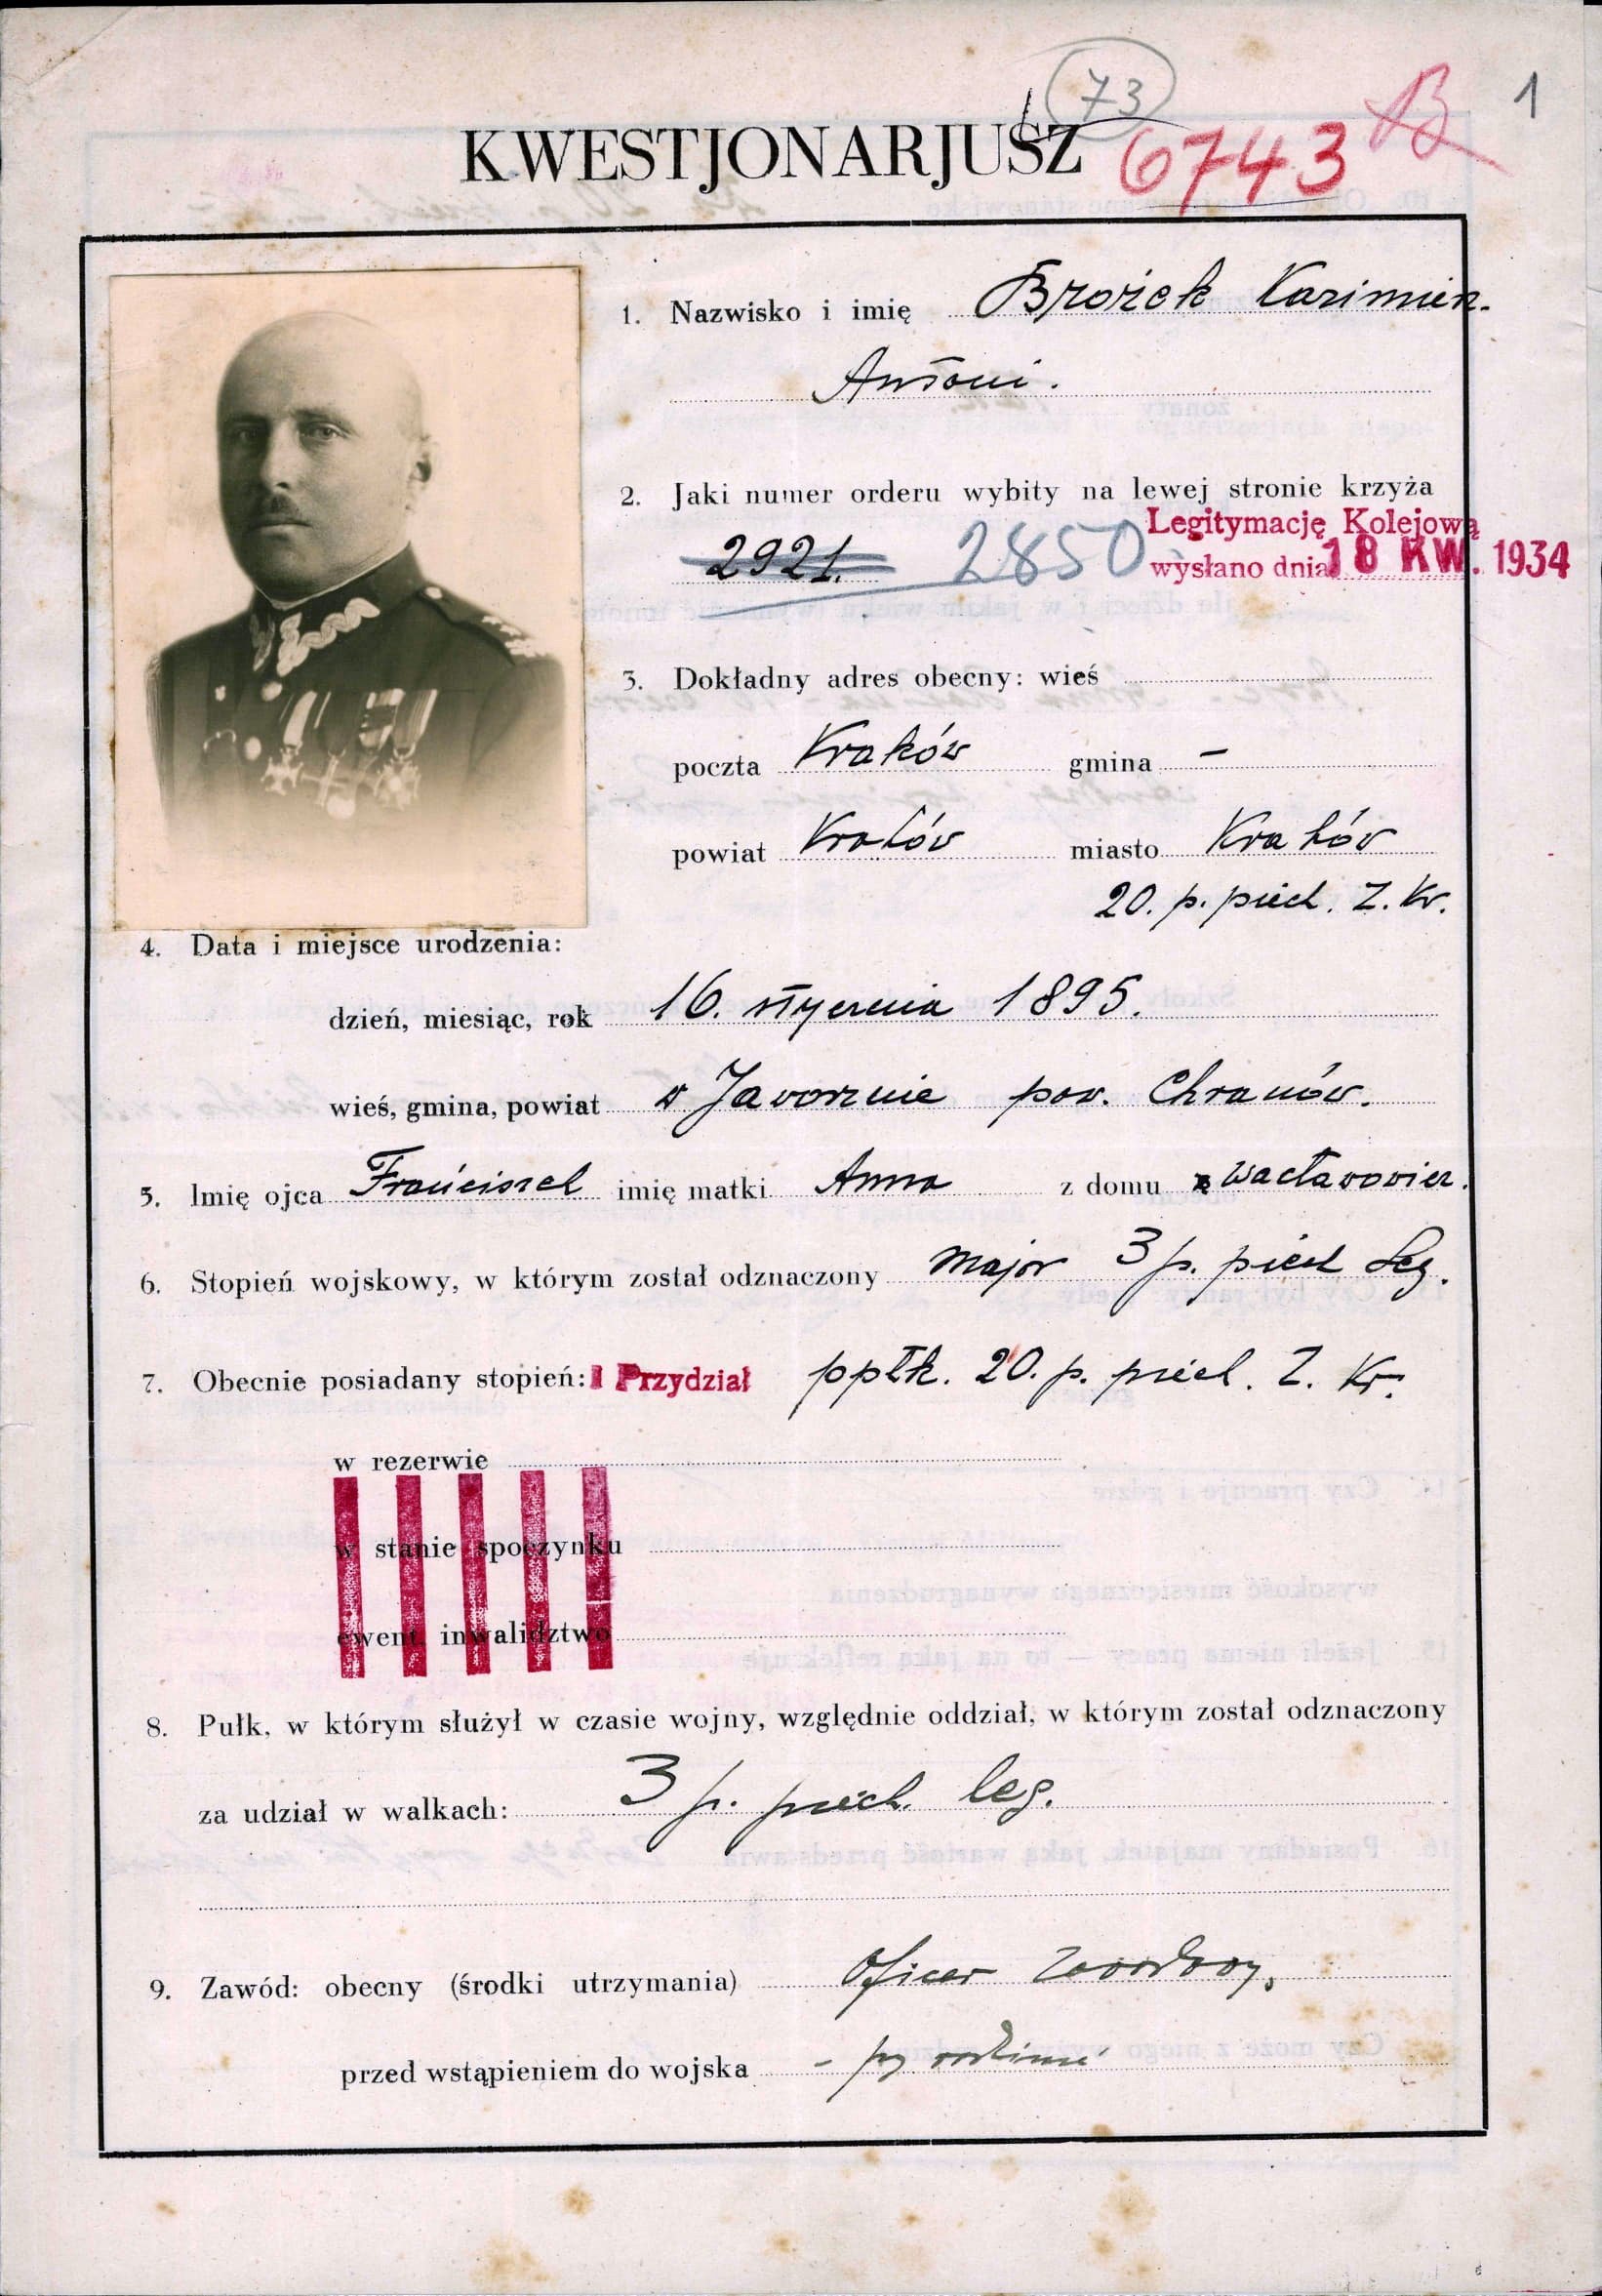 73
1
KWESTJONARJUSZ 6743 B
1. Nazwisko i imię Brożek Kazimierz.
Antoni.
2. Jaki numer orderu wybity na lewej stronie krzyża
2921. 2850
Legitymację Kolejową
wysłano dnia 18 KW. 1934
3. Dokładny adres obecny: wieś
poczta Kraków gmina –
powiat Kraków miasto Kraków
20. p. piech. Z. Kr.
4. Data i miejsce urodzenia:
dzień, miesiąc, rok 16. stycznia 1895.
wieś, gmina, powiat w Jaworznie pow. Chranów.
5. Imię ojca Franciszek imię matki Anna z domu z Wacławowicz.
6. Stopień wojskowy, w którym został odznaczony major 3 p. piech Leg.
7. Obecnie posiadany stopień: I Przydział ppłk. 20. p. piech. Z. Kr.
w rezerwie
w stanie spoczynku
ewent. inwalidztwo
8. Pułk, w którym służył w czasie wojny, względnie oddział, w którym został odznaczony
za udział w walkach: 3 p. piech. leg.
9. Zawód: obecny (środki utrzymania) Oficer zawodowy,
przed wstąpieniem do wojska – przy rodzinie